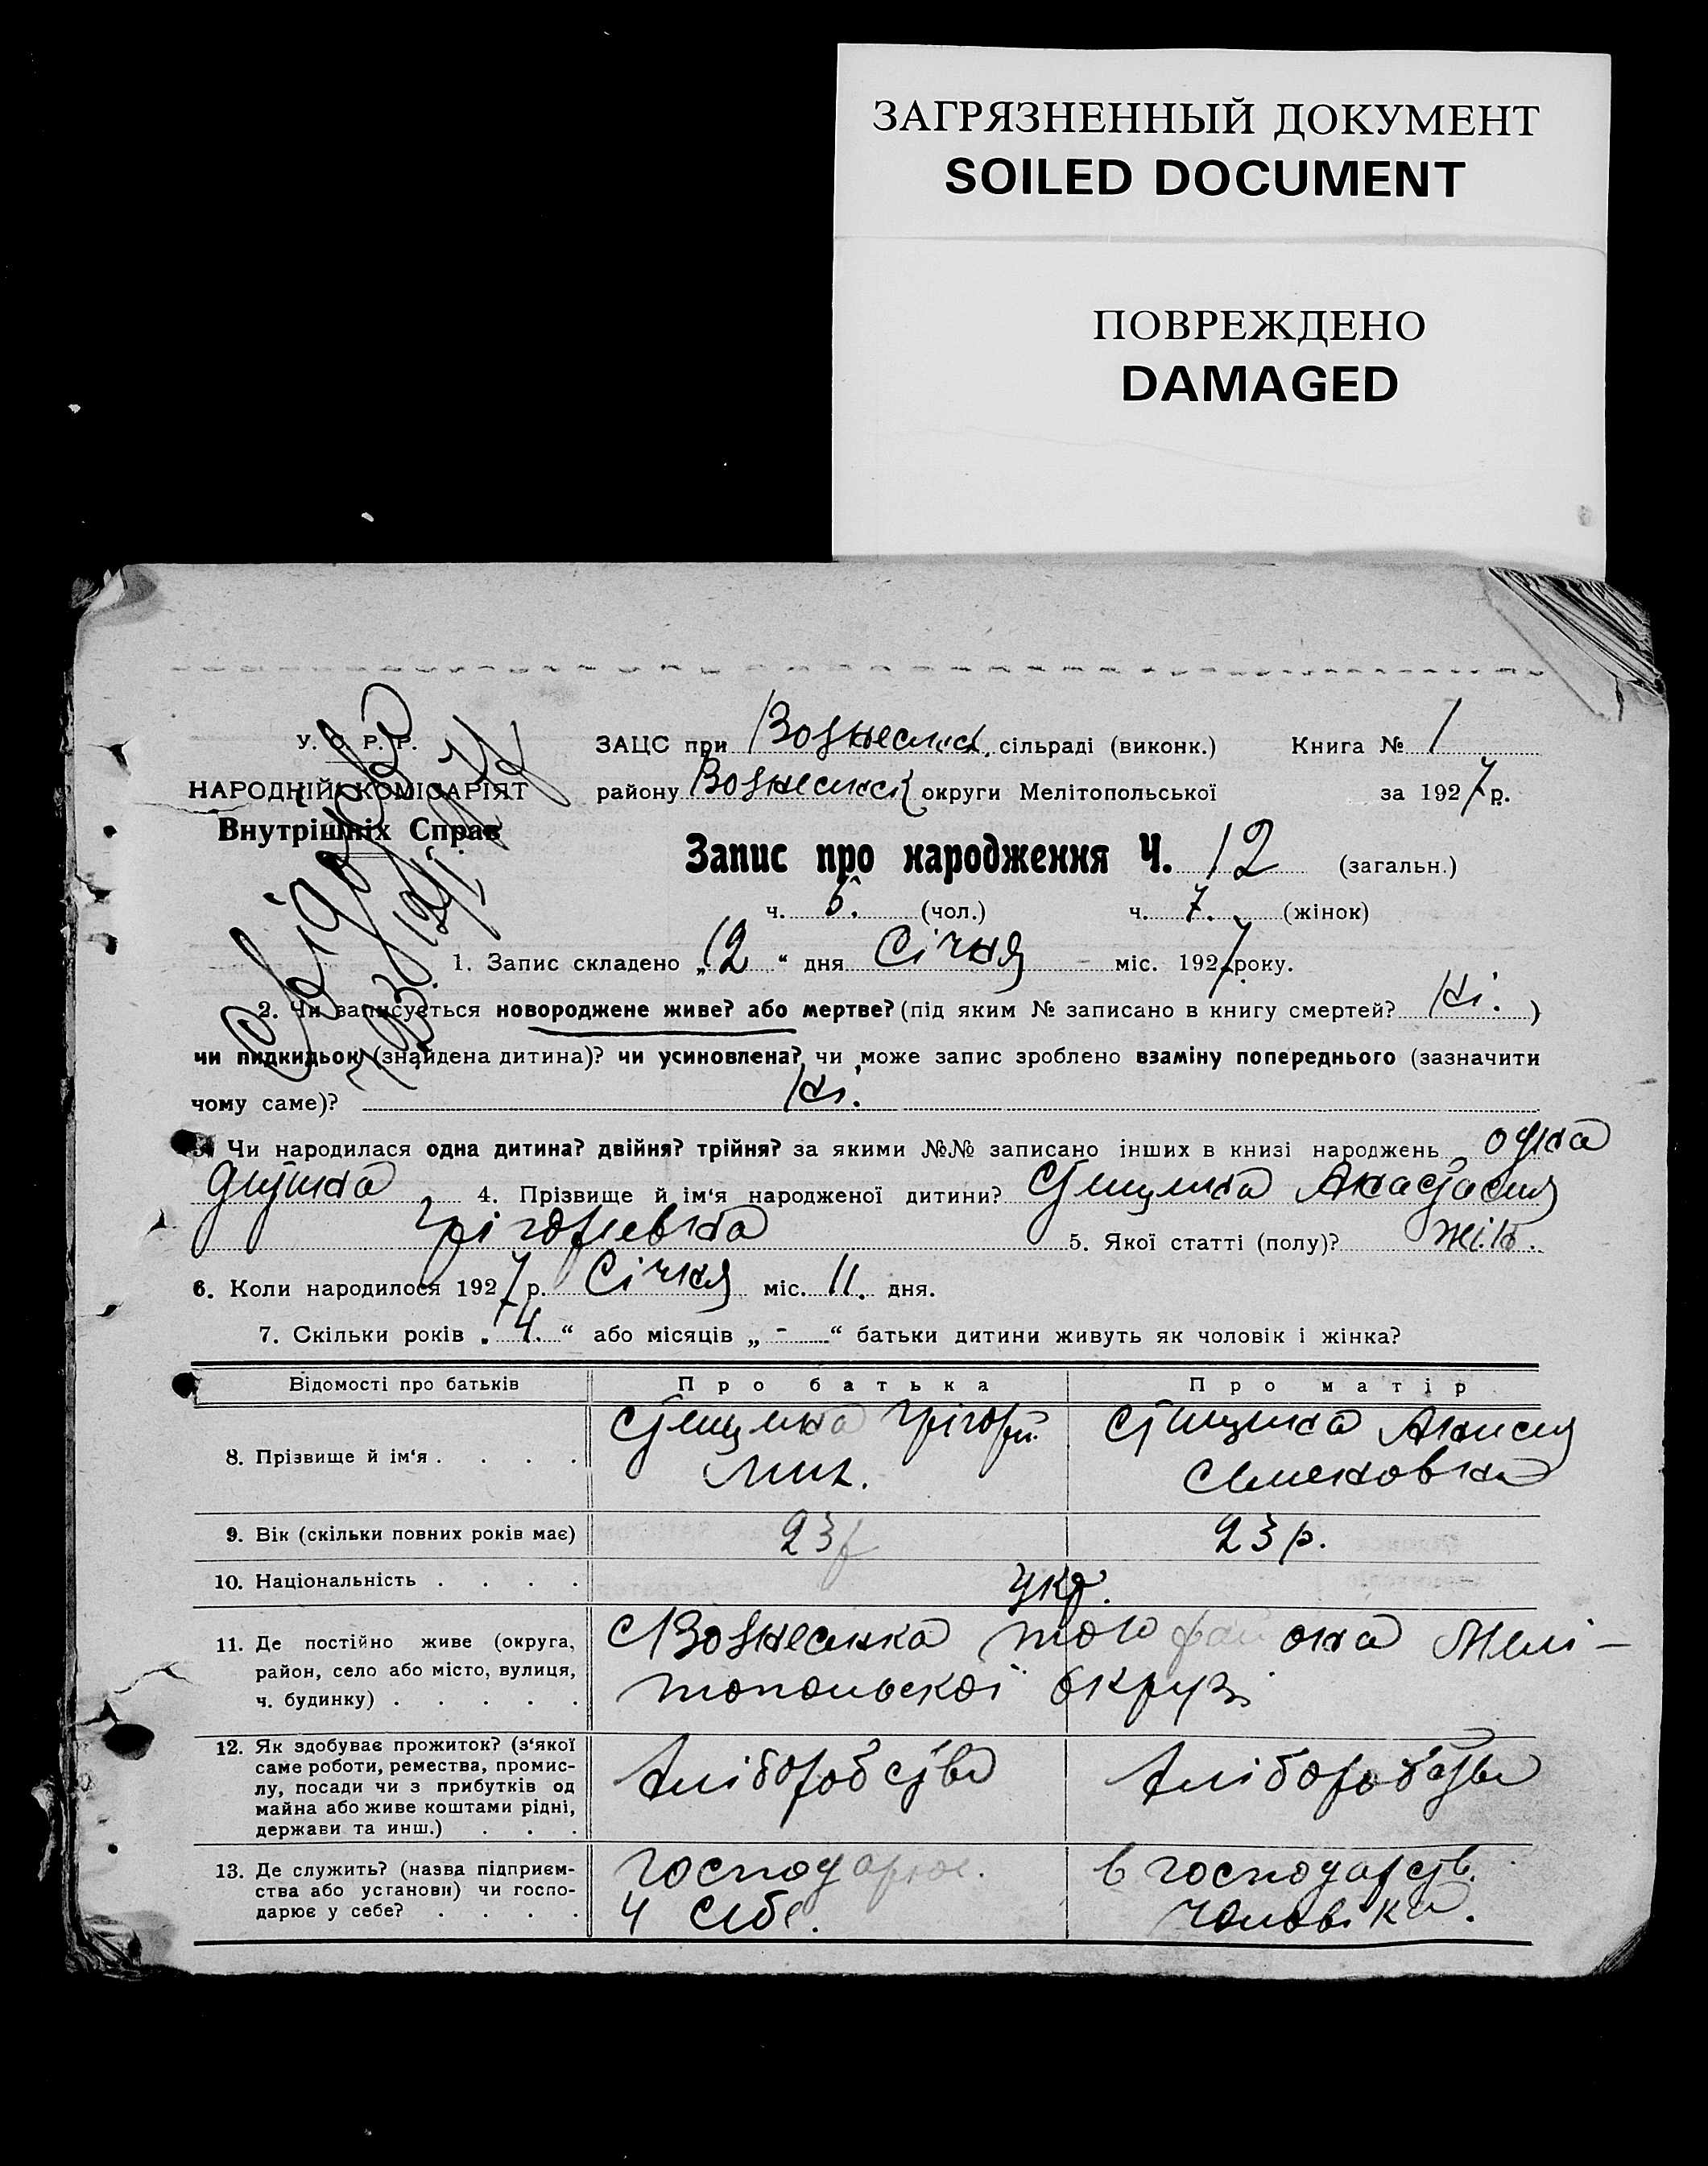 ЗАГРЯЗНЕННЫЙ ДОКУМЕНТ
SOILED DOCUMENT
ПОВРЕЖДЕНО
DAMAGED
У. С. Р. Р.
НАРОДНІЙ КОМІСАРІЯТ
Внутрішніх Справ
ЗАЦС при Вознесенск. сільраді (виконк.) Книга № 1
району Вознесенск округи Мелітопольської за 1927 р.
Запис про народження Ч. 12 (загальн.)
ч. 5. (чол.) ч. 7. (жінок)
1. Запис складено „12“ дня Січня міс. 1927 року.
2. Чи записується новороджене живе? або мертве? (під яким № записано в книгу смертей? Ні. )
чи пидкидьок (знайдена дитина)? чи усиновлена? чи може запис зроблено взаміну попереднього (зазначити
чому саме)? Ні.
3. Чи народилася одна дитина? двійня? трійня? за якими №№ записано інших в книзі народжень одна
4. Прізвище й ім‘я народженої дитини? Анастасия
Грігорьевна 5. Якої статті (полу)? жін.
6. Коли народилося 1927 р. Січня міс. 11. дня.
7. Скільки років „4.“ або місяців „-“ батьки дитини живуть як чоловік і жінка?
Відомості про батьків Про батька Про матір
8. Прізвище й ім‘я . . . . Грігорій Мих.
Семеновна
9. Вік (скільки повних років має) 23 р 23 р.
10. Національність . . . . Укр.
11. Де постійно живе (округа,
район, село або місто, вулиця,
ч. будинку) . . . . .
с Вознесенка того району Мелі-
топольскої округи
12. Як здобуває прожиток? (з‘якої
саме роботи, ремества, промис-
лу, посади чи з прибутків од
майна або живе коштами рідні,
держави та инш.) . . .
Хліборобство Хліборобство
13. Де служить? (назва підприєм-
ства або установи) чи госпо-
дарює у себе? . . . .
господарює.
У себе.
в господарств.
чоловіка.